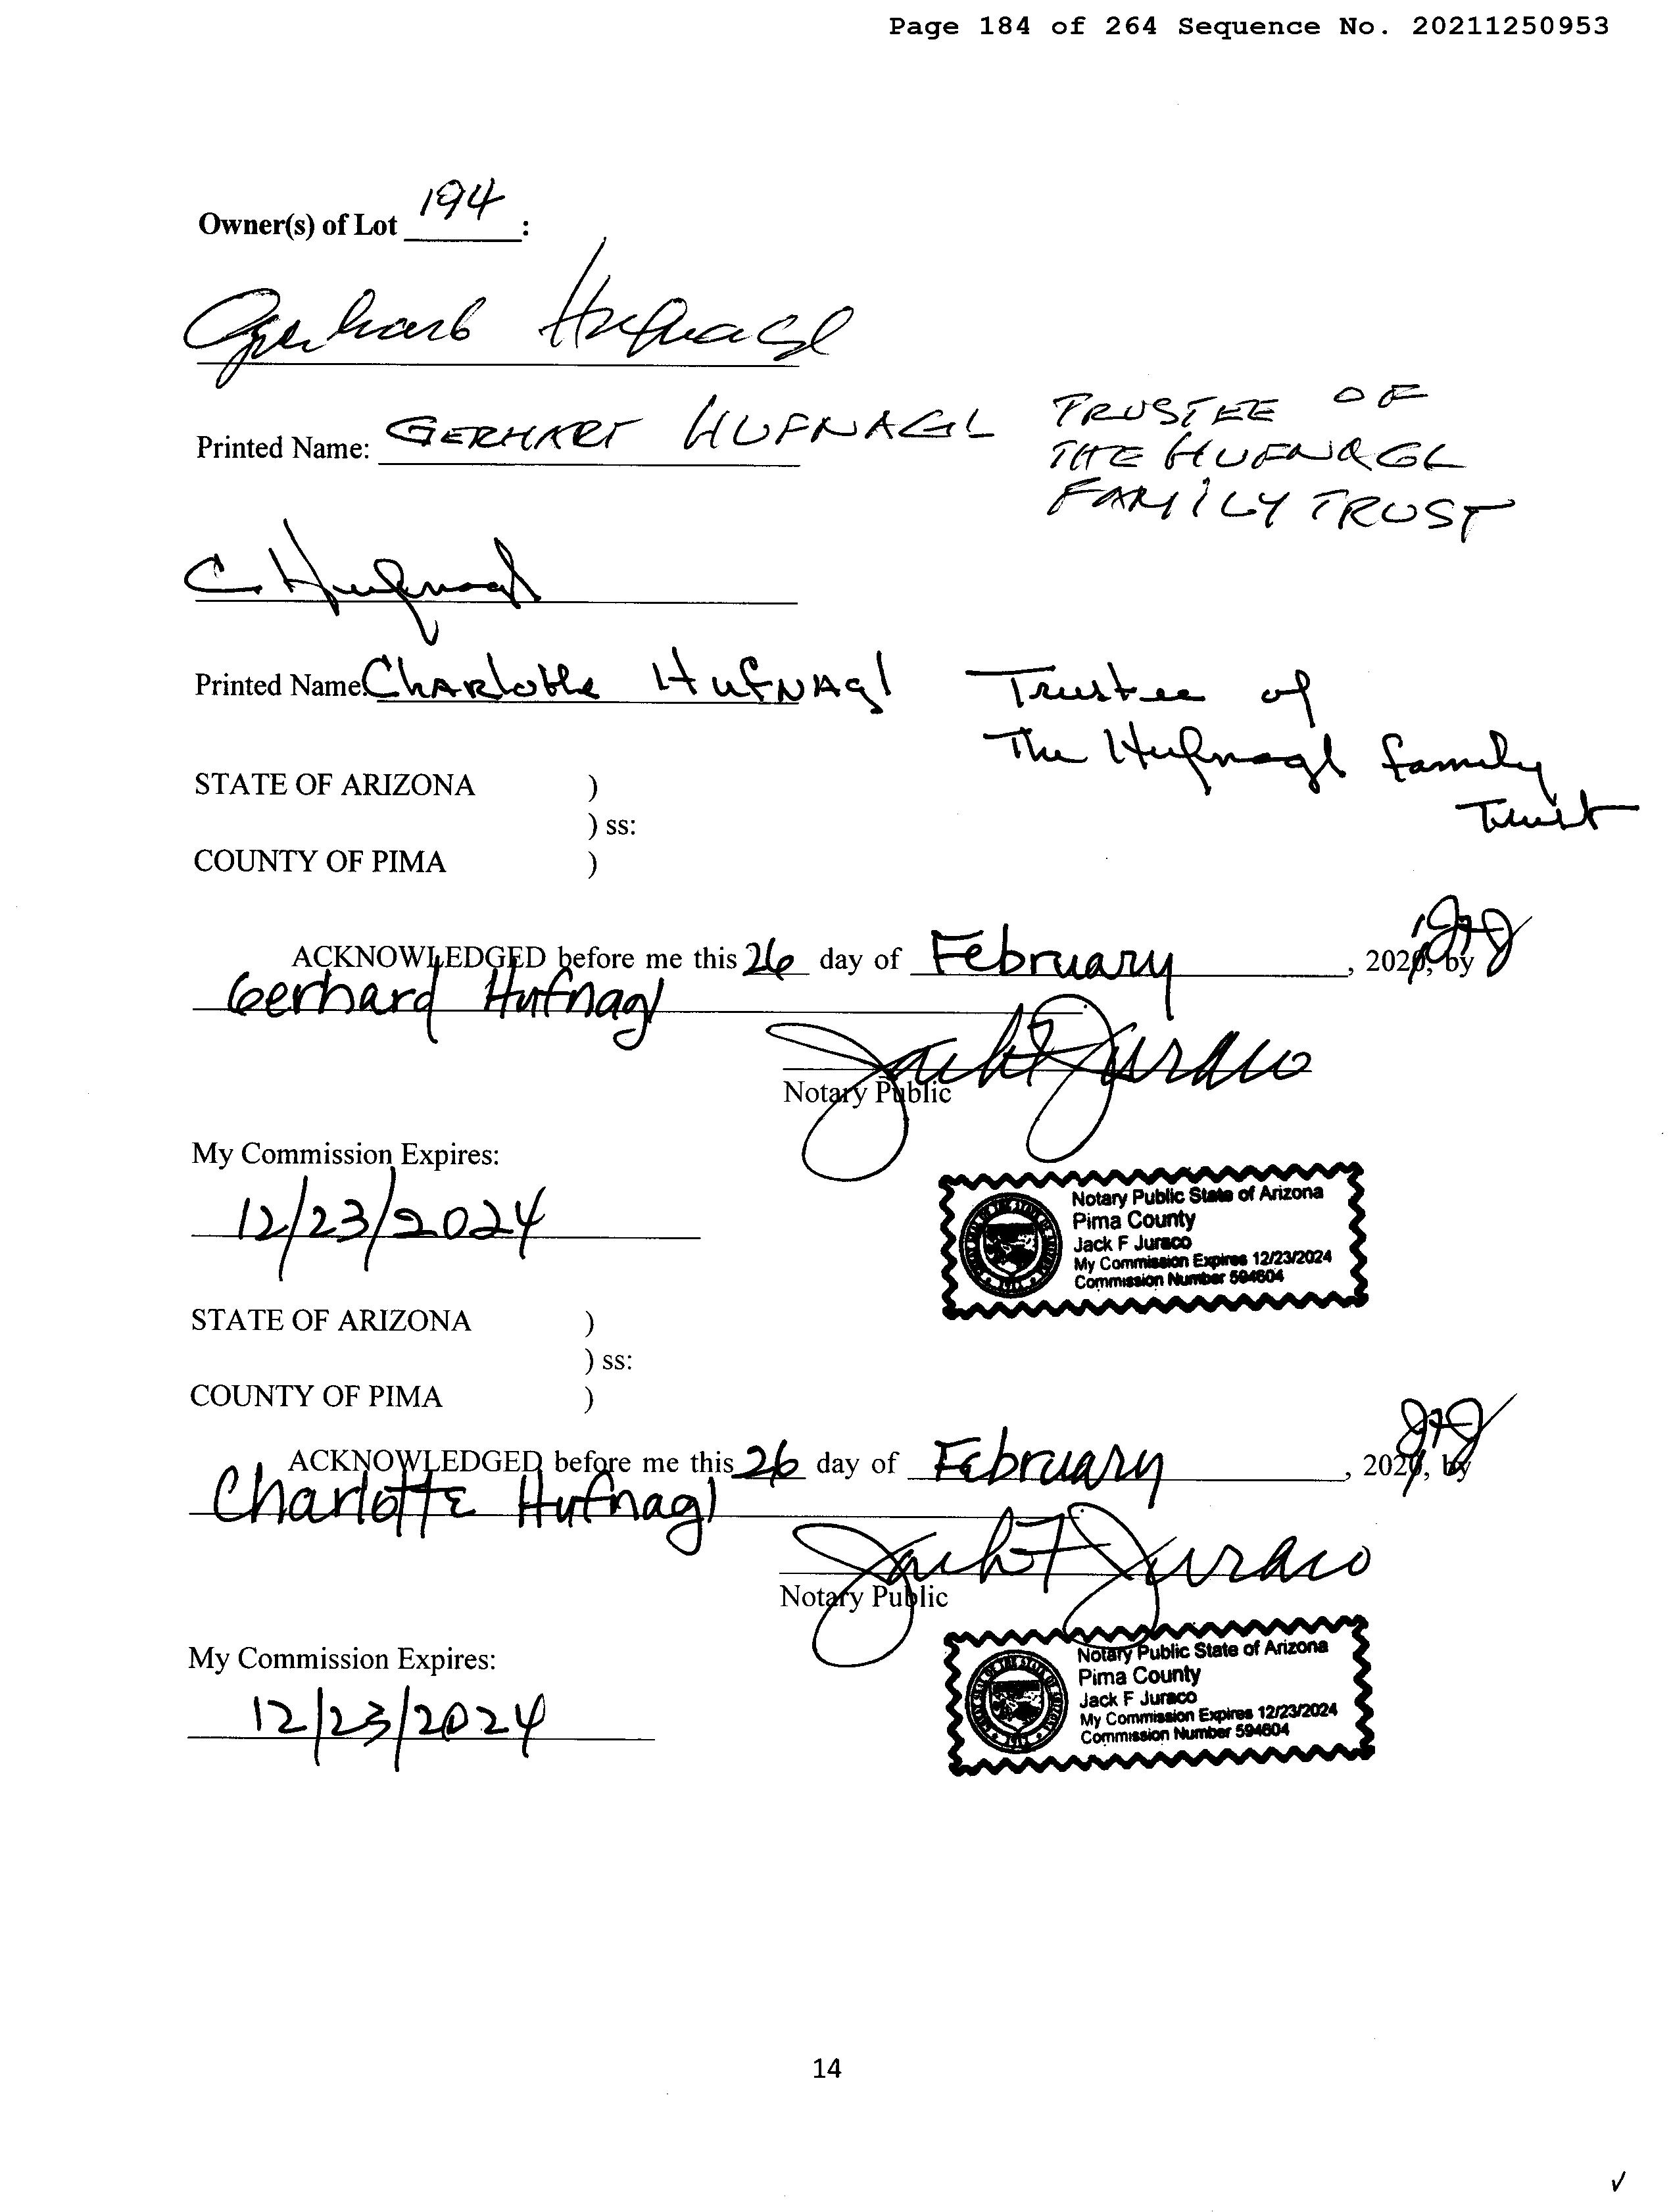 Page 184 of 264 Sequence No. 20211250953
Owner(s) of Lot 194 :
Gerhard Hufnagl
Printed Name: GERHART HUFNAGL TRUSTEE OF
THE HUFNAGL
FAMILY TRUST
C. Hufnagl
Printed Name: Charlotte Hufnagl Trustee of
The Hufnagl family
Trust
STATE OF ARIZONA )
) ss:
COUNTY OF PIMA )
ACKNOWLEDGED before me this 26 day of February, 202 , by
JFJ
Gerhard Hufnagl
Jack F Juraco
Notary Public
My Commission Expires:
12/23/2024
Notary Public State of Arizona
Pima County
Jack F Juraco
My Commission Expires 12/23/2024
Commission Number 594604
STATE OF ARIZONA )
) ss:
COUNTY OF PIMA )
JFJ
ACKNOWLEDGED before me this 26 day of February, 202 , by
Charlotte Hufnagl
Jack F Juraco
Notary Public
My Commission Expires:
12/23/2024
Notary Public State of Arizona
Pima County
Jack F Juraco
My Commission Expires 12/23/2024
Commission Number 594604
14